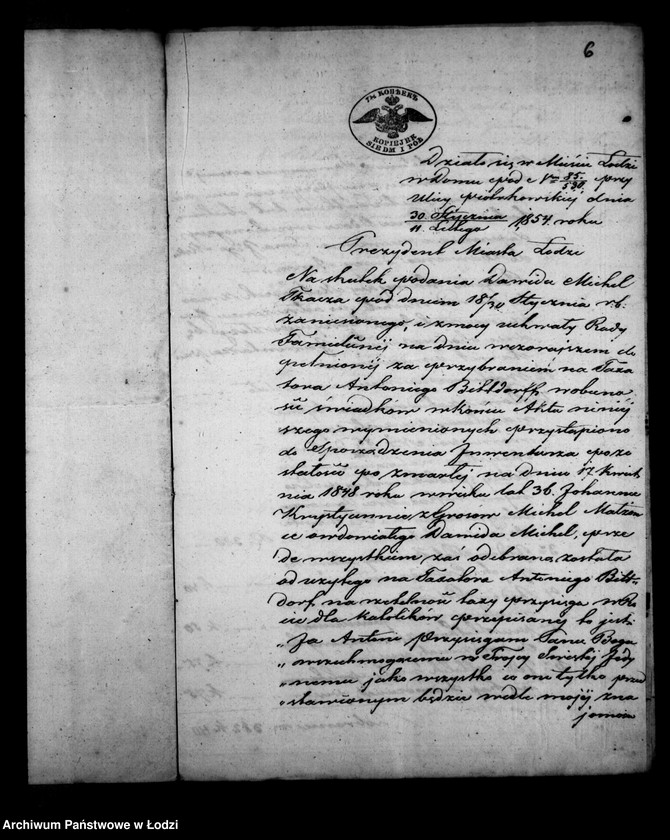 6
7½ КОПѢЕКЪ
KOPIEJEK
SIEDM I PÓŁ
Działo się w Mieście Łodzi
w Domu pod Nrm 85/530 przy
Ulicy Piotrkowskiej dnia
30 Stycznia / 11 Lutego 1854 roku
Prezydent Miasta Łodzi
Na skutek podania Dawida Michel
Tkacza pod dniem 18/30 Stycznia r. b.
zaniesionego, i z mocy uchwały Rady
Familijnej na dniu wczorajszem do
pełnionej za przybraniem na Taxa
tora Antoniego Bittdorff w obecno
ści świadków w końcu Aktu niniej
szego wymienionych przystąpiono
do Sporządzenia Inwentarza pozo
stałości po zmarłej na dniu 17 Kwiet
nia 1848 roku w wieku lat 36. Johannie
Krystyannie z Grosów Michel Małżon
ce owdowiałego Dawida Michel, prze
de wszystkiem zaś odebraną została
od użytego na Taxatora Antoniego Bitt-
dorf na rzetelność taxy przysięga w Ro
cie dla katolików przepisanej to jest:
„Ja Antoni Przysięgam Panu Bogu
„wszechmogącemu w Trójcy Świętej Jedy
„nemu jako wszystko co mi tylko przed
„stawionym będzie wedle mojej zna
jomości
Archiwum Państwowe w Łodzi